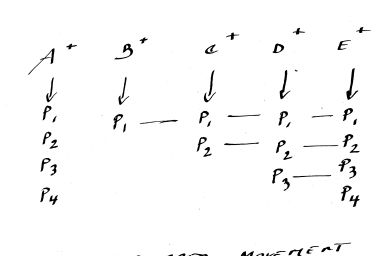 A+ B+ C+ D+ E+
P1 P1 — P1 — P1 — P1
P2 P2 — P2 — P2
P3 P3 — P3
P4 P4
MOVEMENT